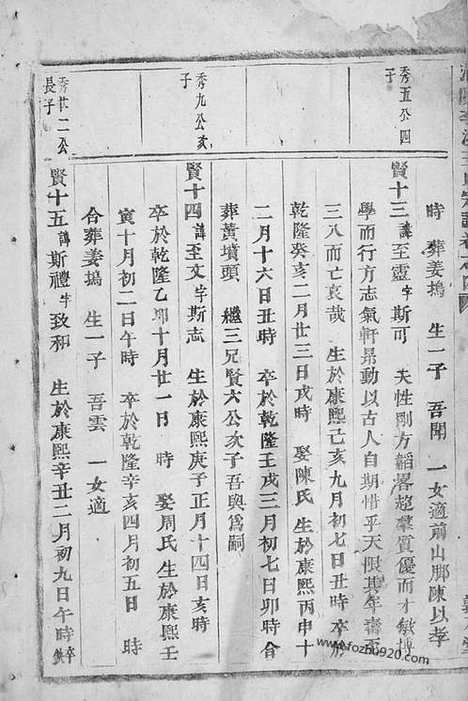 時 葬姜塢 生一子 吾聞 一女適前山脚陳以孝
秀五公四子
賢十三諱至靈字斯可 夫性剛方韜畧超羣質優而才敏博
學而行方志氣軒昻動以古人自期惜乎天限其年壽
三八而亡哀哉 生於康熙己亥九月初七日丑時 卒於
乾隆癸亥二月廿三日戌時 娶陳氏 生於康熙丙申十
二月十六日丑時 卒於乾隆壬戌三月初七日卯時合
葬黃墳頭 繼三兄賢六公次子吾與爲嗣
秀九公次子
賢十四諱至文字斯志 生於康熙庚子正月十四日亥時
卒於乾隆乙卯十月廿一日 時 娶周氏生於康熙壬
寅十月初二日午時 卒於乾隆辛亥四月初五日 時
合葬姜塢 生一子 吾雲 一女適
秀廿二公長子
賢十五諱斯禮字致和 生於康熙辛丑二月初九日午時卒
www.fozhu920.com